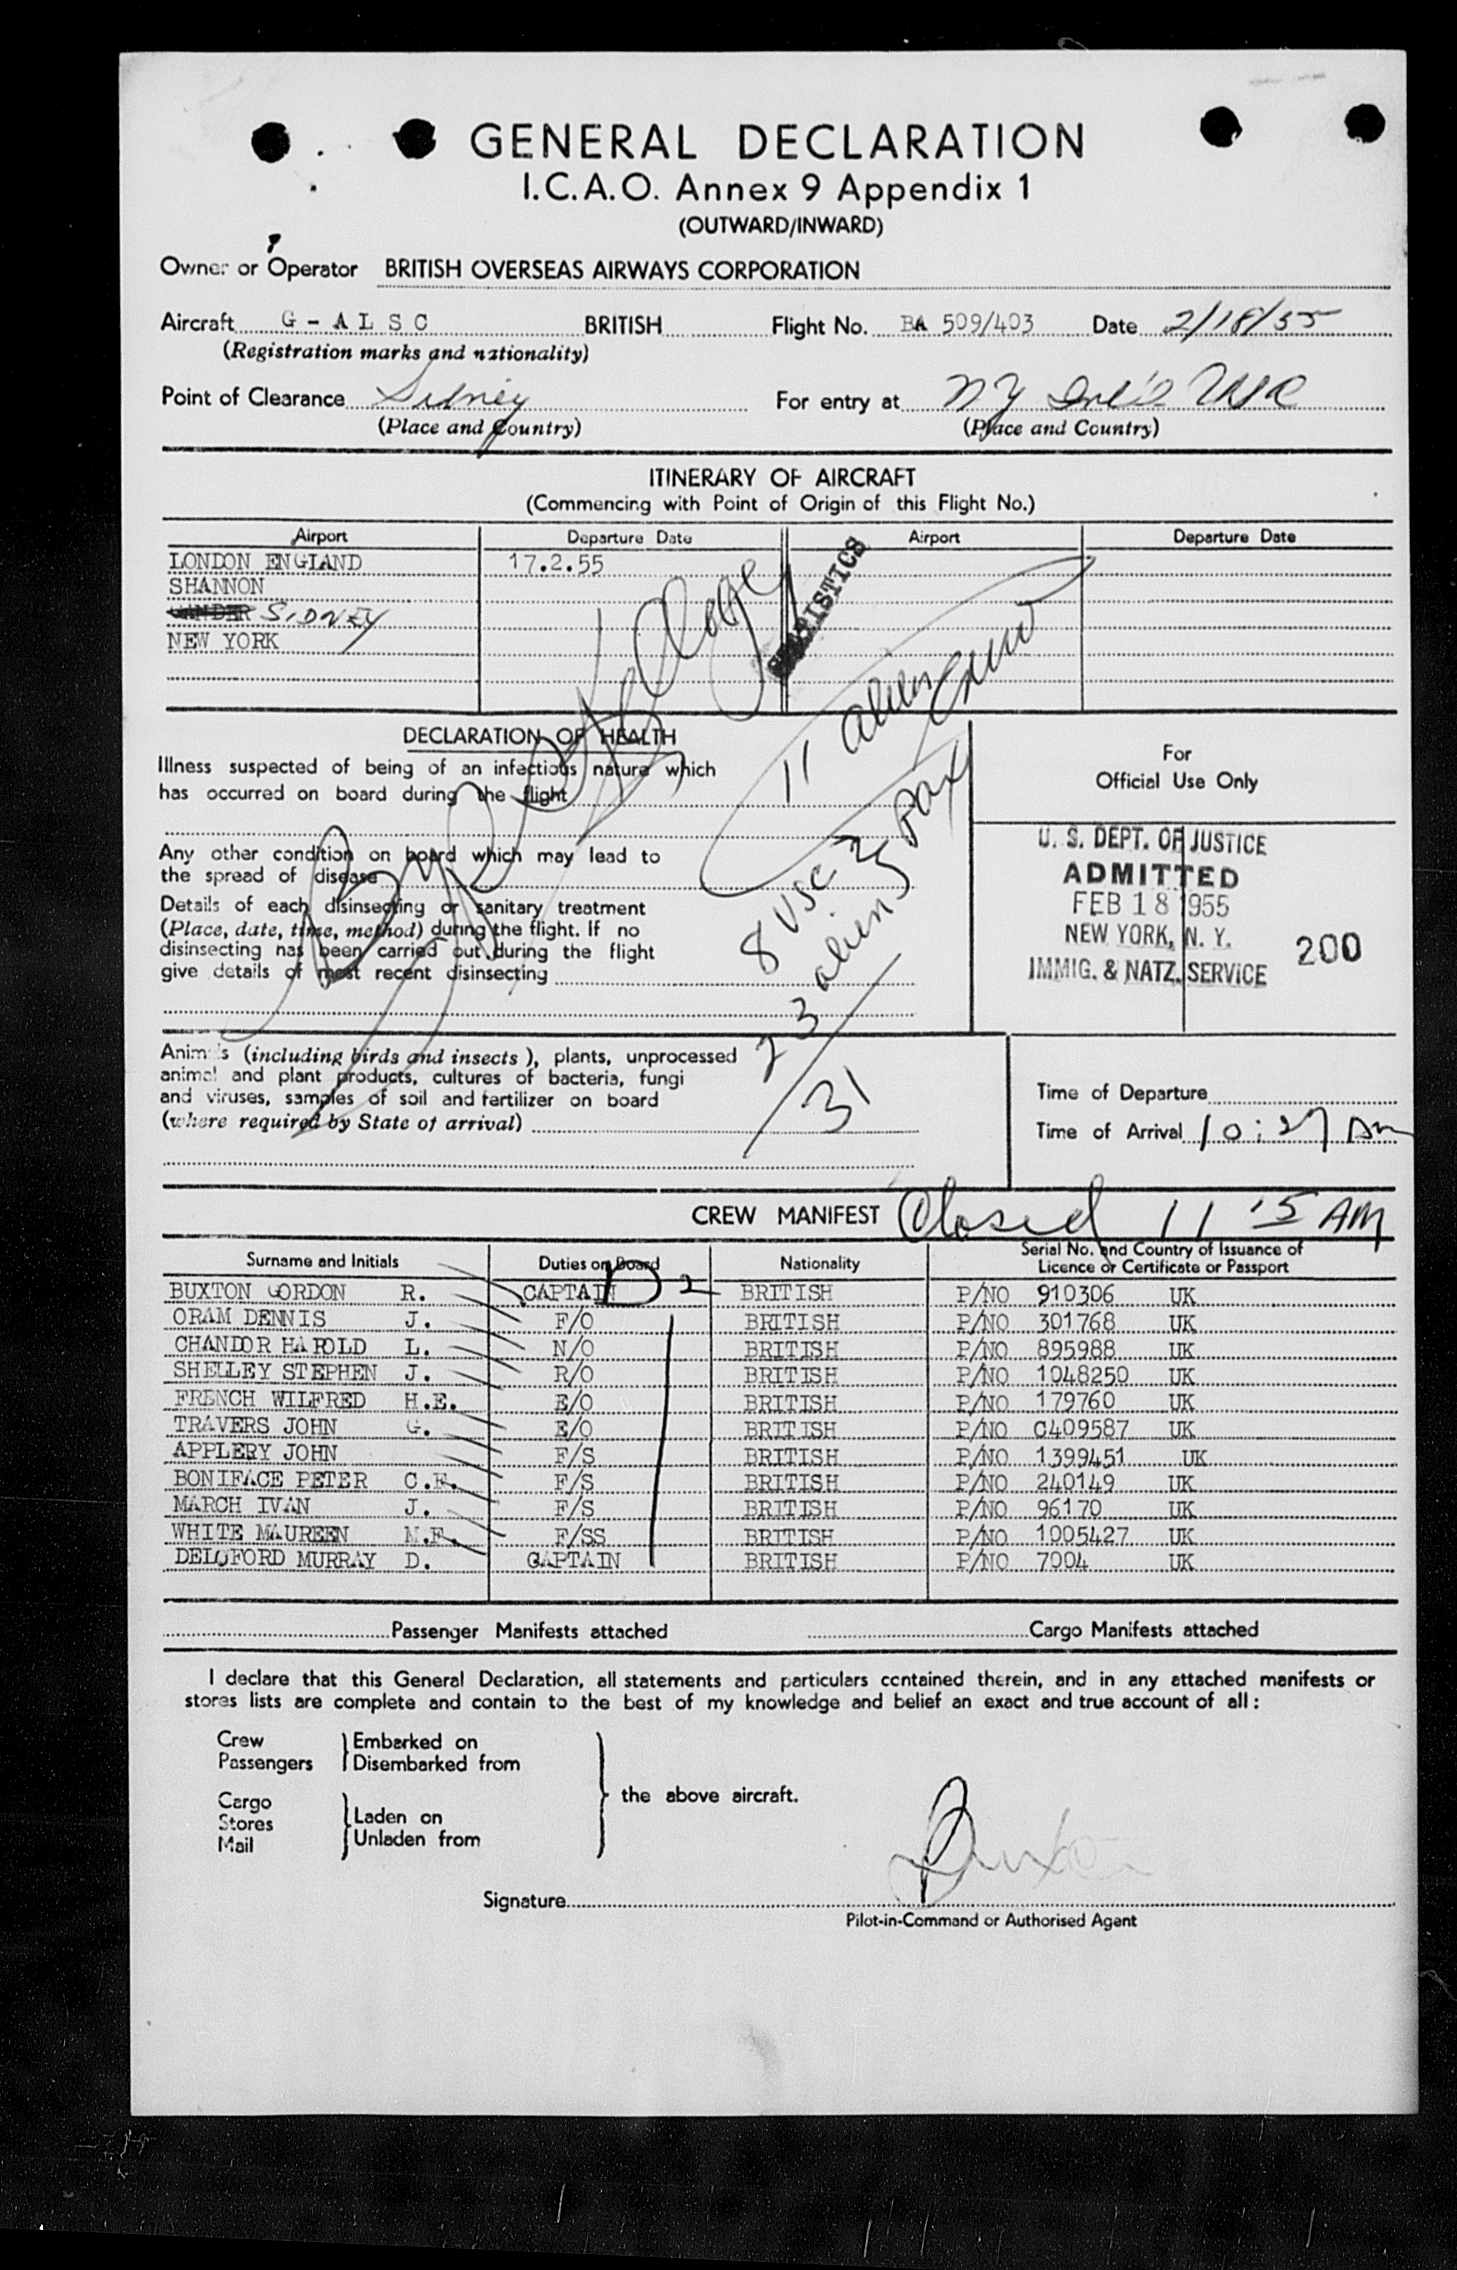 GENERAL DECLARATION
I.C.A.O. Annex 9 Appendix 1
(OUTWARD/INWARD)
Owner or Operator BRITISH OVERSEAS AIRWAYS CORPORATION
Aircraft G - A L S C BRITISH Flight No. BA 509/403 Date 2/18/55
(Registration marks and nationality)
Point of Clearance Sidney For entry at NY
(Place and Country) (Place and Country)
ITINERARY OF AIRCRAFT
(Commencing with Point of Origin of this Flight No.)
Airport Departure Date Airport Departure Date
LONDON ENGLAND 17.2.55
SHANNON
SIDNEY
NEW YORK
STATISTICS
11 aliens
8 USC
23 aliens pax
31
DECLARATION OF HEALTH
Illness suspected of being of an infectious nature which
has occurred on board during the flight
Any other condition on board which may lead to
the spread of disease
Details of each disinsecting or sanitary treatment
(Place, date, time, method) during the flight. If no
disinsecting has been carried out during the flight
give details of most recent disinsecting
For
Official Use Only
U. S. DEPT. OF JUSTICE
ADMITTED
FEB 18 1955
NEW YORK, N. Y. 200
IMMIG. & NATZ. SERVICE
Animals (including birds and insects), plants, unprocessed
animal and plant products, cultures of bacteria, fungi
and viruses, samples of soil and fertilizer on board
(where required by State of arrival)
Time of Departure
Time of Arrival 10:27 Am
CREW MANIFEST Closed 11 15 AM
Surname and Initials Duties on Board Nationality Serial No. and Country of Issuance of
Licence or Certificate or Passport
D 2
BUXTON GORDON R. CAPTAIN BRITISH P/NO 910306 UK
ORAM DENNIS J. F/O BRITISH P/NO 301768 UK
CHANDOR HAROLD L. N/O BRITISH P/NO 895988 UK
SHELLEY STEPHEN J. R/O BRITISH P/NO 1048250 UK
FRENCH WILFRED H.E. E/O BRITISH P/NO 179760 UK
TRAVERS JOHN G. E/O BRITISH P/NO C409587 UK
APPLEBY JOHN F/S BRITISH P/NO 1399451 UK
BONIFACE PETER C.F. F/S BRITISH P/NO 240149 UK
MARCH IVAN J. F/S BRITISH P/NO 96170 UK
WHITE MAUREEN M.F. F/SS BRITISH P/NO 1005427 UK
DELOFORD MURRAY D. CAPTAIN BRITISH P/NO 7004 UK
Passenger Manifests attached Cargo Manifests attached
I declare that this General Declaration, all statements and particulars contained therein, and in any attached manifests or
stores lists are complete and contain to the best of my knowledge and belief an exact and true account of all :
Crew Embarked on
Passengers Disembarked from
the above aircraft.
Cargo
Stores Laden on
Mail Unladen from
Buxton
Signature
Pilot-in-Command or Authorised Agent